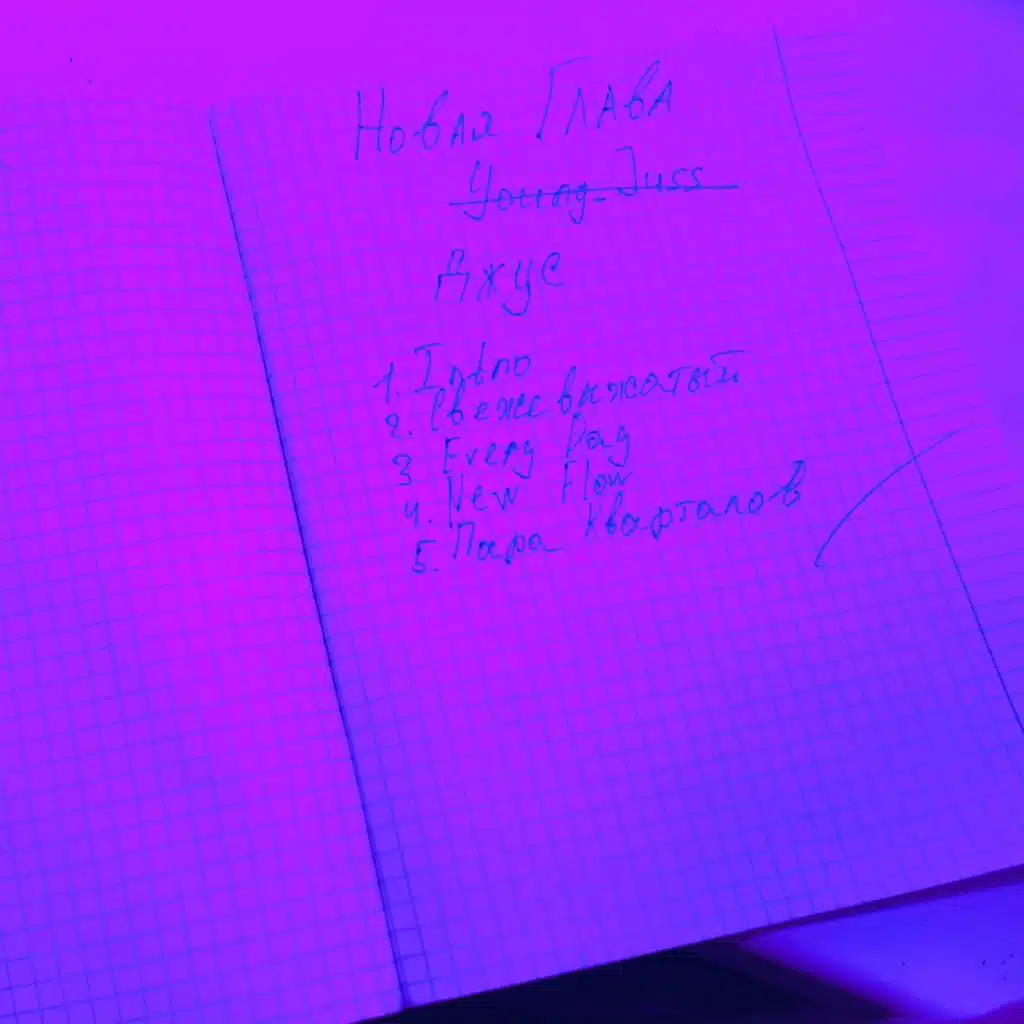 Новая Глава
Young Juss
Джус
1. Intro
2. Свежевыжатый
3 Every Day
4. New Flow
5. Пара Кварталов